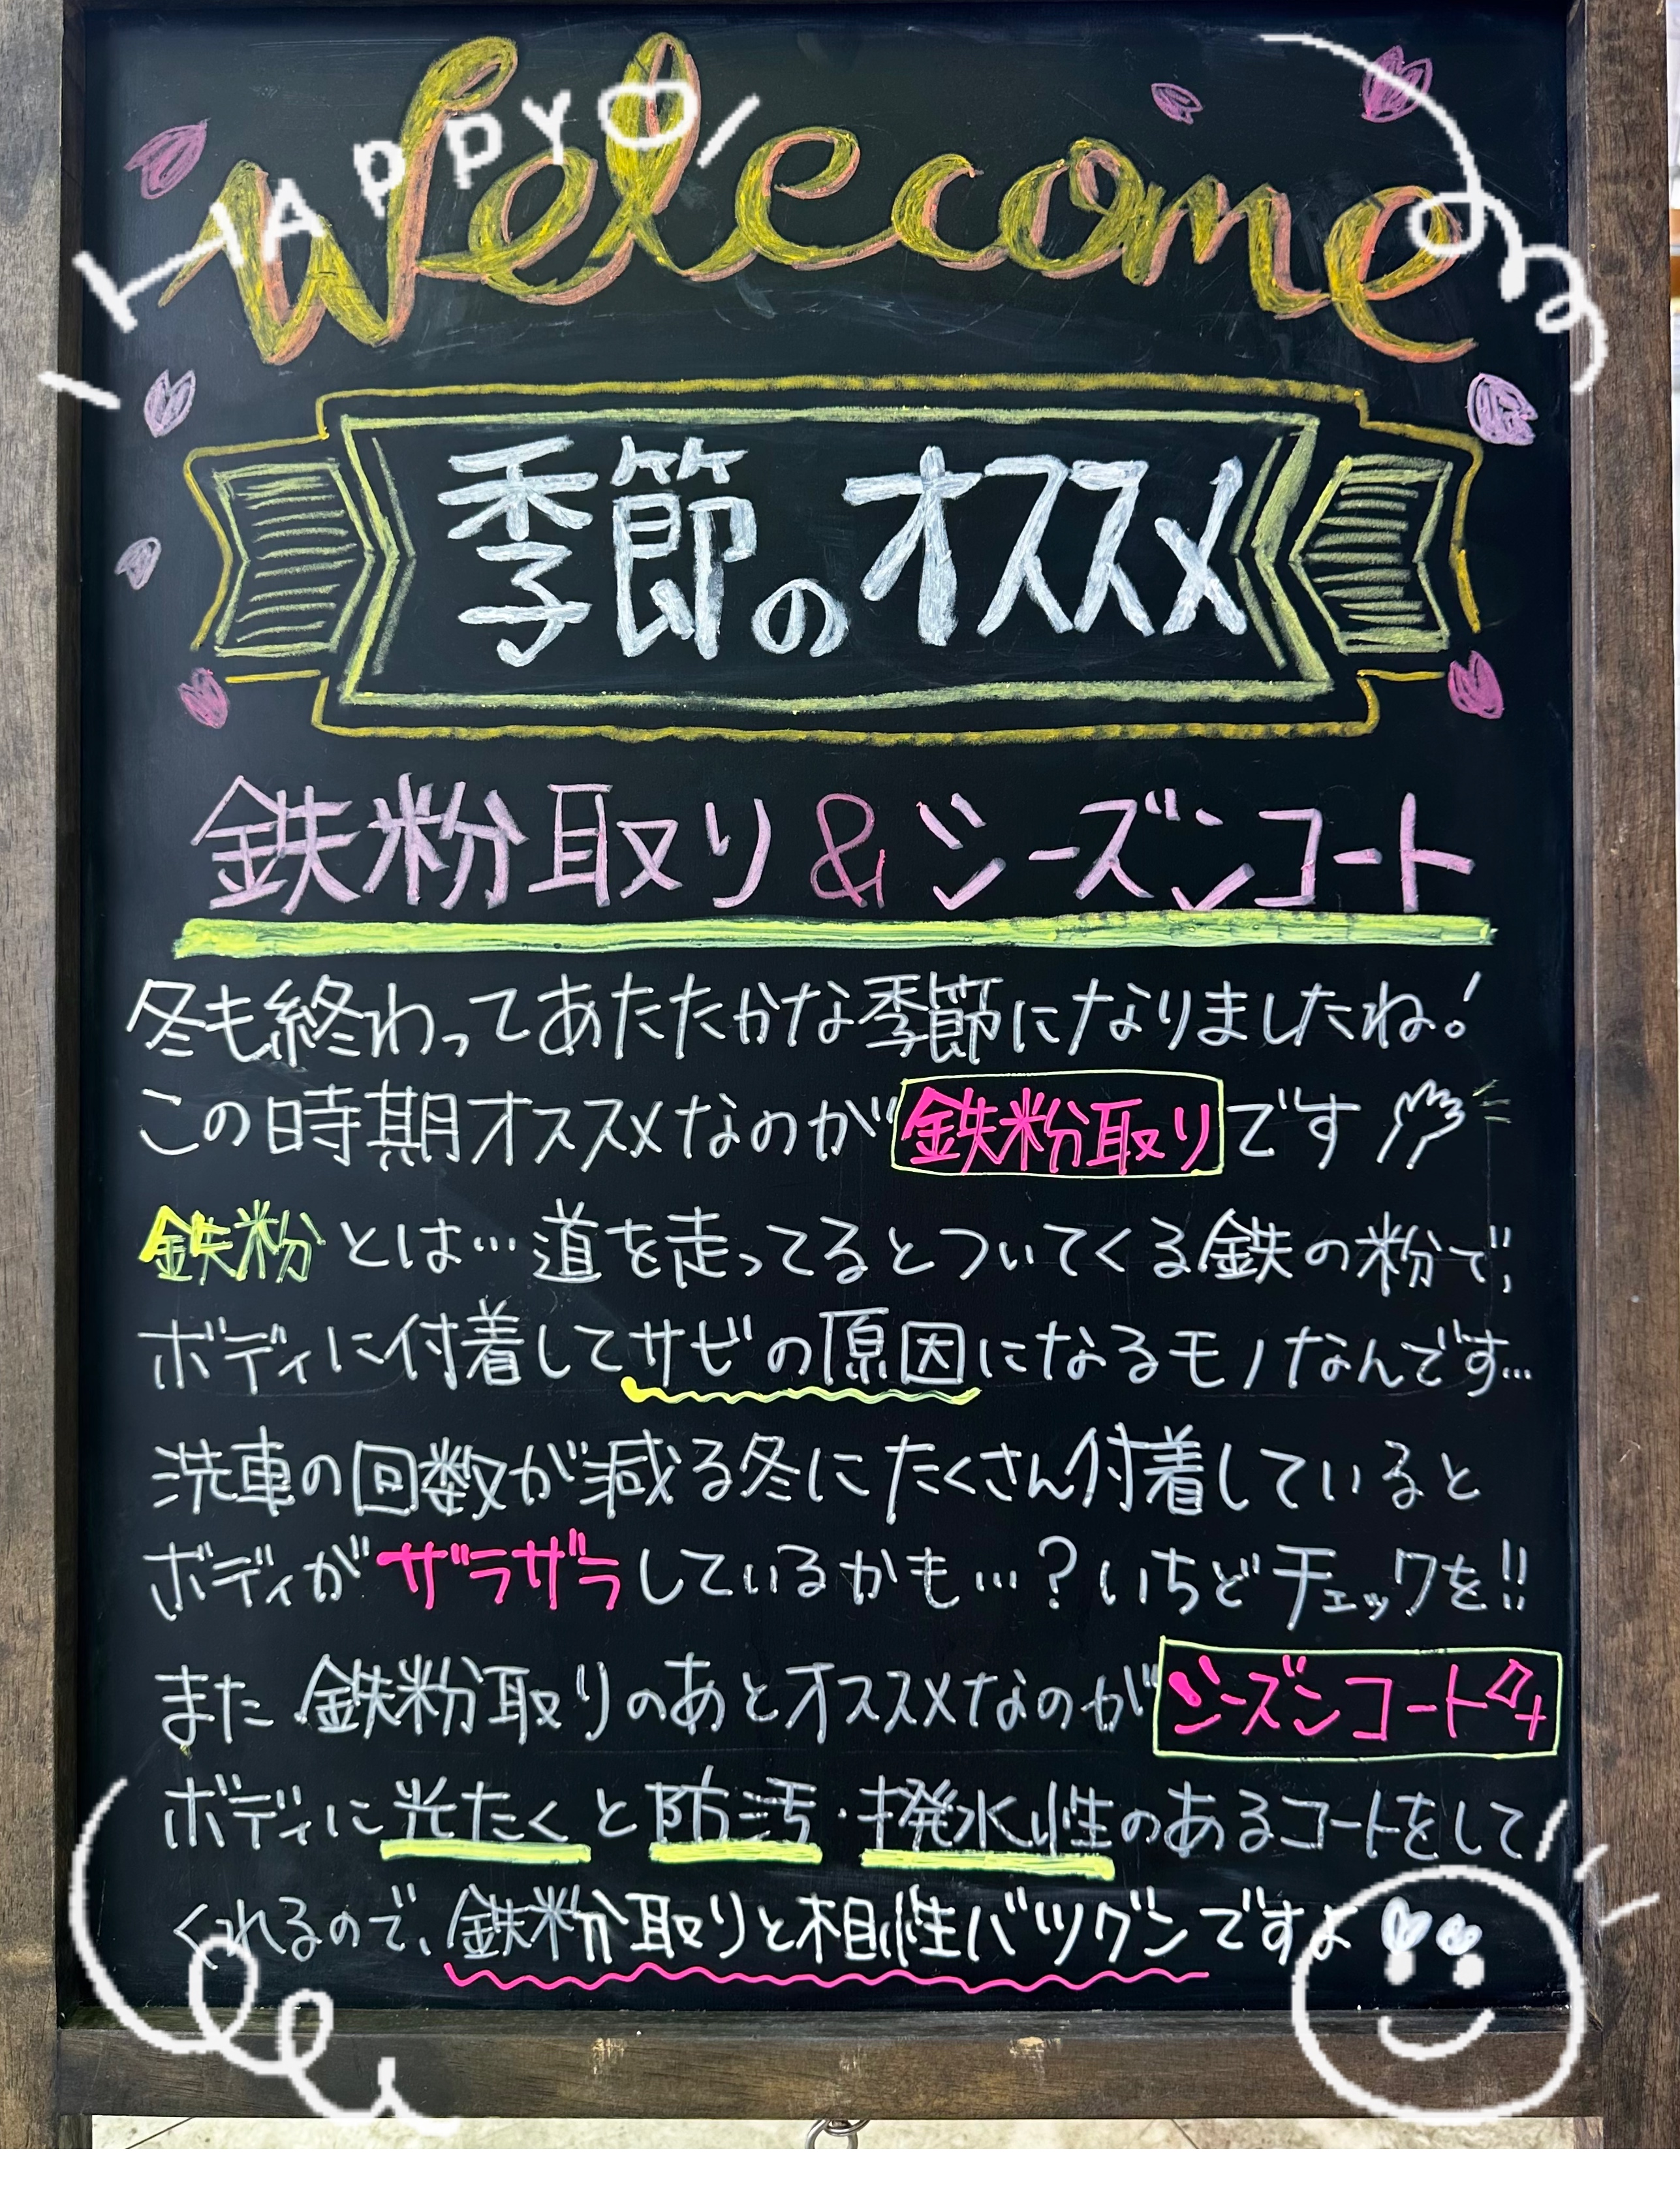 HAPPY
Welecome
季節のオススメ
鉄粉取り&シーズンコート
冬も終わってあたたかな季節になりましたね!
この時期オススメなのが鉄粉取りです
鉄粉とは…道を走ってるとついてくる鉄の粉で、
ボディに付着してサビの原因になるモノなんです…
洗車の回数が減る冬にたくさん付着していると
ボディがザラザラしているかも…?いちどチェックを!!
また鉄粉取りのあとオススメなのがシーズンコート
ボディに光たくと防汚・撥水性のあるコートをして
くれるので、鉄粉取りと相性バツグンですよ